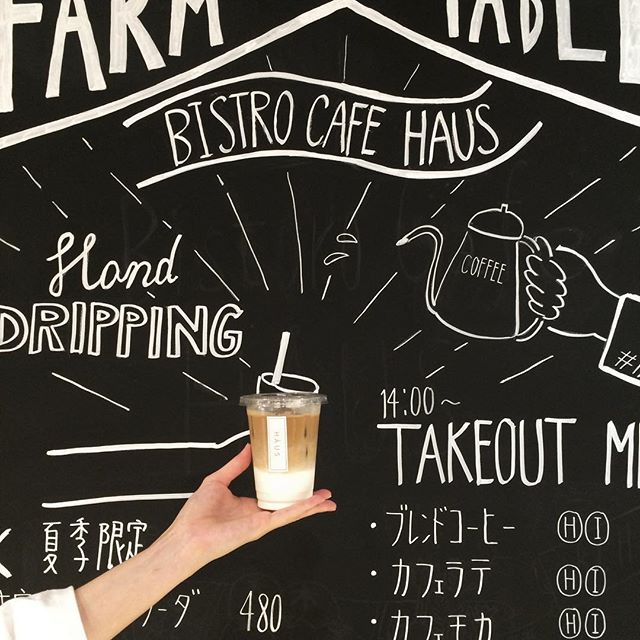 FARM TABL
BISTRO CAFE HAUS
Hand
DRIPPING
COFFEE
HAUS
14:00~
TAKEOUT M
・ブレンドコーヒー Ⓗ Ⓘ
・カフェラテ Ⓗ Ⓘ
・カフェモカ Ⓗ Ⓘ
夏季限定
ソーダ 480